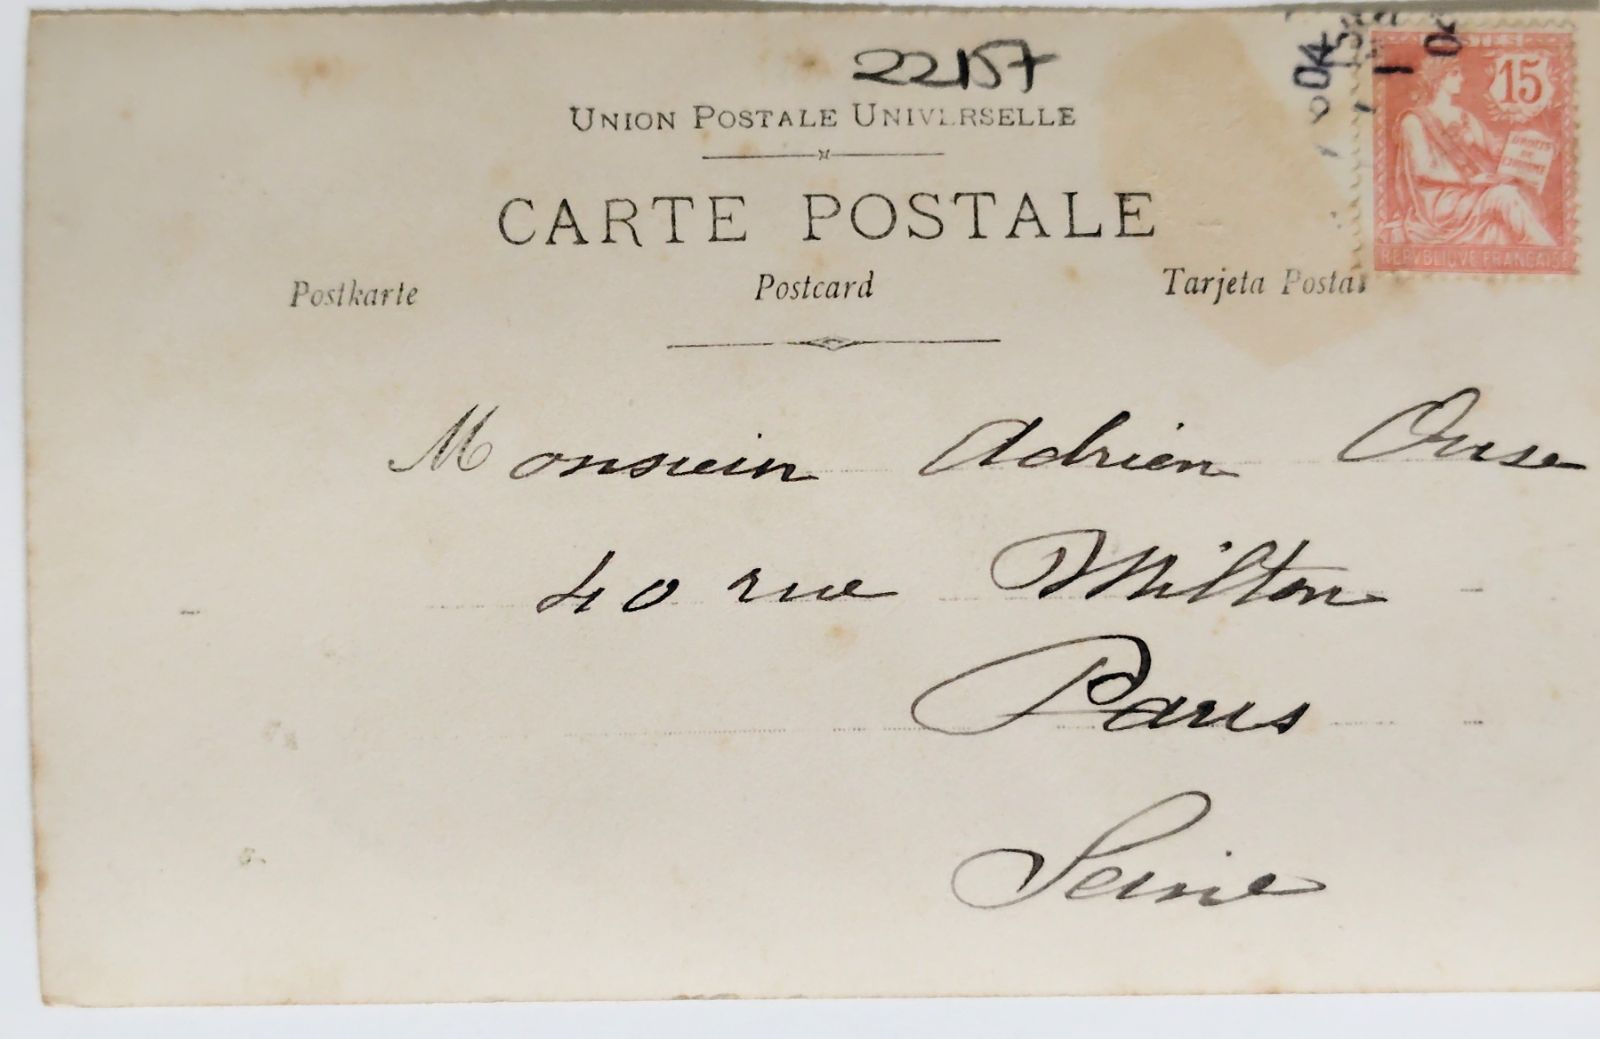 22157
UNION POSTALE UNIVERSELLE
CARTE POSTALE
Postkarte Postcard Tarjeta Postal
04
1 04
15
DROITS DE L'HOMME
REPVBLIQVE FRANCAISE
Monsieur Adrien
40 rue Milton
Paris
Seine